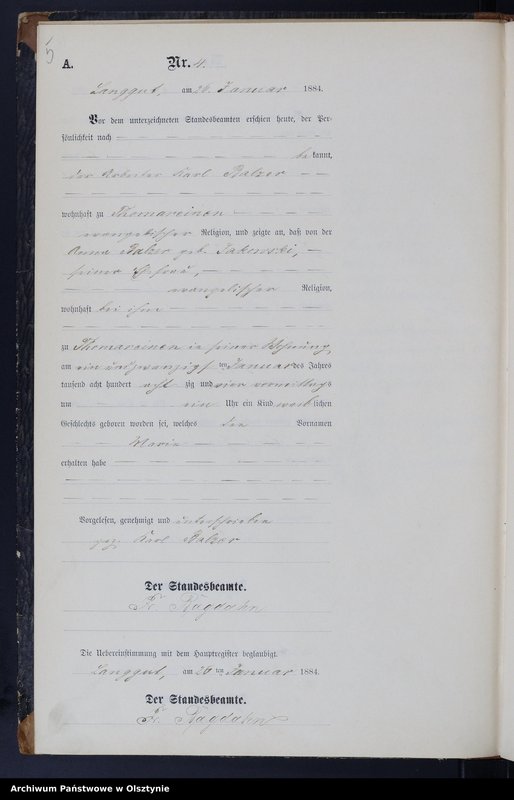 5
A. Nr. 4.
Langgut, am 26. Januar 1884.
Vor dem unterzeichneten Standesbeamten erschien heute, der Per-
sönlichkeit nach
be kannt,
der Arbeiter Karl Balzer
wohnhaft zu Thomareinen
evangelischer Religion, und zeigte an, daß von der
Anna Balzer geb. Jakowski,
seiner Ehefrau,
evangelischer Religion,
wohnhaft bei ihm
zu Thomareinen in seiner Wohnung
am ein und zwanzigsten Januar des Jahres
tausend acht hundert acht zig und vier vormittags
um ein Uhr ein Kind weiblichen
Geschlechts geboren worden sei, welches den Vornamen
Marie
erhalten habe
Vorgelesen, genehmigt und unterschrieben
gez. Karl Balzer
Der Standesbeamte.
Fr. Ragdahn
Die Uebereinstimmung mit dem Hauptregister beglaubigt.
Langgut, am 26 ten Januar 1884.
Der Standesbeamte.
Fr. Ragdahn
Archiwum Państwowe w Olsztynie